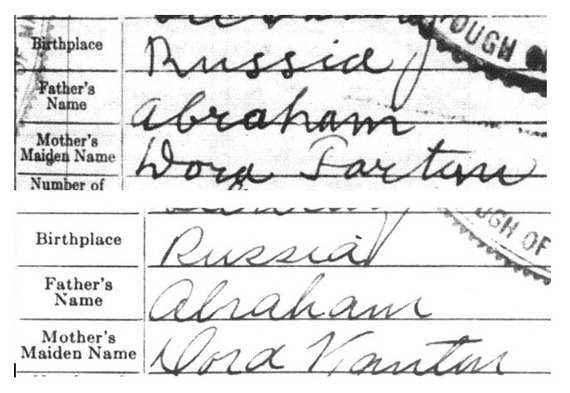 OUGH
Birthplace Russia
Father's Name Abraham
Mother's Maiden Name Dora
Number of
UGH OF
Birthplace Russia
Father's Name Abraham
Mother's Maiden Name Dora Kanter